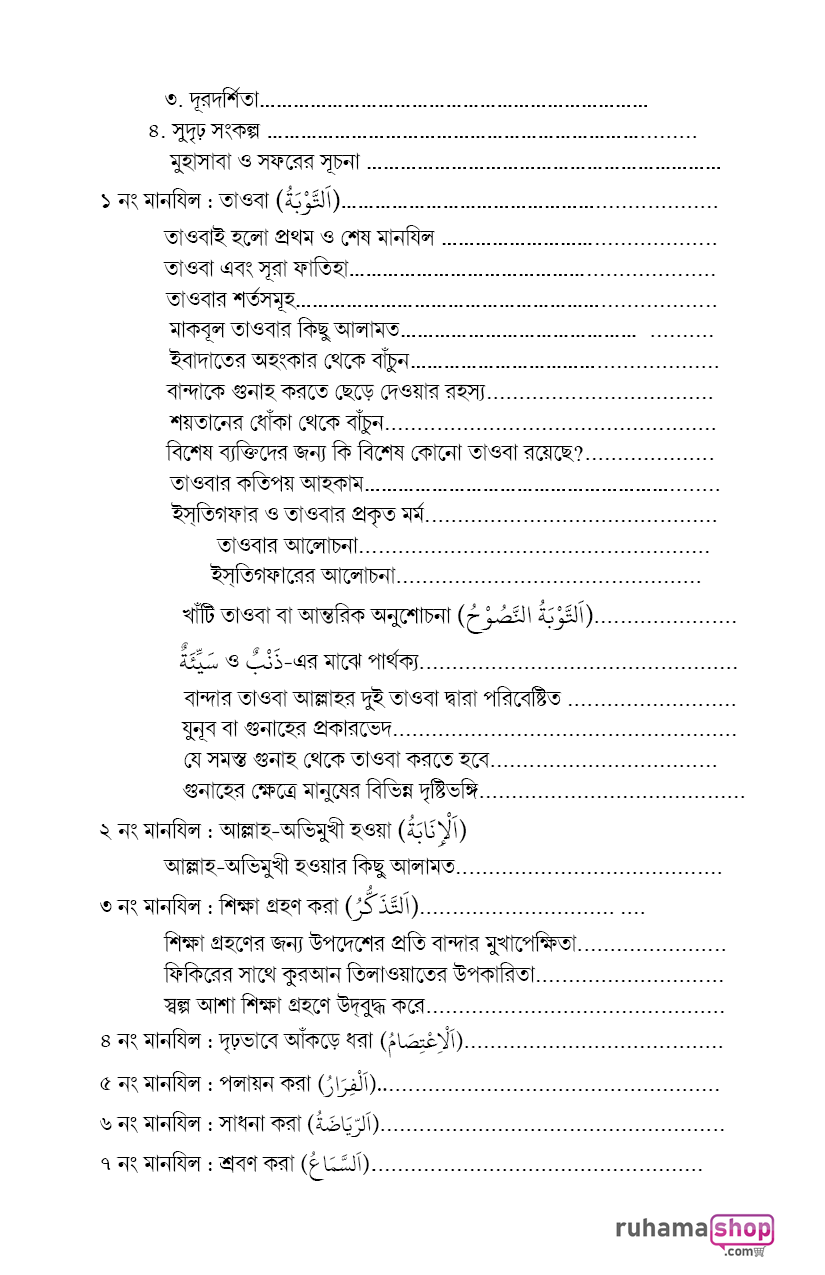 ৩. দূরদর্শিতা....................................................................
৪. সুদৃঢ় সংকল্প ..........................................................................
মুহাসাবা ও সফরের সূচনা ..............................................................
১ নং মানযিল : তাওবা (اَلتَّوْبَةُ)..................................................................
তাওবাই হলো প্রথম ও শেষ মানযিল ..............................................
তাওবা এবং সূরা ফাতিহা..............................................................
তাওবার শর্তসমূহ........................................................................
মাকবূল তাওবার কিছু আলামত.......................................... ..........
ইবাদাতের অহংকার থেকে বাঁচুন....................................................
বান্দাকে গুনাহ করতে ছেড়ে দেওয়ার রহস্য...................................
শয়তানের ধোঁকা থেকে বাঁচুন...................................................
বিশেষ ব্যক্তিদের জন্য কি বিশেষ কোনো তাওবা রয়েছে?....................
তাওবার কতিপয় আহকাম..............................................................
ইস্‌তিগফার ও তাওবার প্রকৃত মর্ম.............................................
তাওবার আলোচনা......................................................
ইস্‌তিগফারের আলোচনা...............................................
খাঁটি তাওবা বা আন্তরিক অনুশোচনা (اَلتَّوْبَةُ النَّصُوْحُ)......................
سَيِّئَةٌ ও ذَنْبٌ-এর মাঝে পার্থক্য.................................................
বান্দার তাওবা আল্লাহর দুই তাওবা দ্বারা পরিবেষ্টিত ..........................
যুনূব বা গুনাহের প্রকারভেদ.....................................................
যে সমস্ত গুনাহ থেকে তাওবা করতে হবে...................................
গুনাহের ক্ষেত্রে মানুষের বিভিন্ন দৃষ্টিভঙ্গি.........................................
২ নং মানযিল : আল্লাহ-অভিমুখী হওয়া (اَلْإِنَابَةُ)
আল্লাহ-অভিমুখী হওয়ার কিছু আলামত.........................................
৩ নং মানযিল : শিক্ষা গ্রহণ করা (اَلتَّذَكُّرُ).............................. ....
শিক্ষা গ্রহণের জন্য উপদেশের প্রতি বান্দার মুখাপেক্ষিতা.......................
ফিকিরের সাথে কুরআন তিলাওয়াতের উপকারিতা.............................
স্বল্প আশা শিক্ষা গ্রহণে উদ্‌বুদ্ধ করে..............................................
৪ নং মানযিল : দৃঢ়ভাবে আঁকড়ে ধরা (اَلْاِعْتِصَامُ)........................................
৫ নং মানযিল : পলায়ন করা (اَلْفِرَارُ).....................................................
৬ নং মানযিল : সাধনা করা (اَلرِّيَاضَةُ).....................................................
৭ নং মানযিল : শ্রবণ করা (اَلسَّمَاعُ)...................................................
ruhamashop
.com